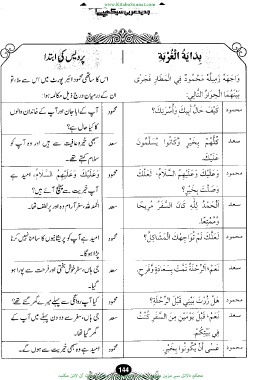 www.KitaboSunnat.com
بِدَايَةُ الْغُرْبَةِ
پردیس کی ابتدا
وَاجَهَهُ زَمِيلُهُ مَحْمُودٌ فِي الْمَطَارِ فَجَرَى
بَيْنَهُمَا الْحِوَارُ التَّالِيُ:
اس کا ساتھی محمود ائیرپورٹ میں اس سے ملا، تو
ان کے درمیان درج ذیل مکالمہ ہوا:
محمود
كَيْفَ حَالُ أَبِيكَ وَأُسْرَتِكَ؟
محمود
آپ کے ابا جان اور آپ کے خاندان والوں
کا کیا حال ہے؟
سعد
كُلُّهُمْ بِخَيْرٍ وَكَانُوا يُسَلِّمُونَ
عَلَيْكَ.
سعد
سبھی خیر و عافیت سے ہیں اور وہ آپ کو
سلام کہتے تھے۔
محمود
وَعَلَيْكَ وَعَلَيْهِمُ السَّلَامُ، لَعَلَّكَ
وَصَلْتَ بِخَيْرٍ؟
محمود
وَعَلَيْكَ وَعَلَيْهِمُ السَّلَامُ، امید ہے
آپ خیریت سے پہنچ گئے ہیں؟
سعد
اَلْحَمْدُ لِلَّهِ كَانَ السَّفَرُ مُرِيحًا
وَمُمْتِعًا.
سعد
الحمد للہ، سفر آرام دہ اور پرلطف تھا۔
محمود
لَعَلَّكَ لَمْ تُوَاجِهْكَ الْمَشَاكِلُ؟
محمود
امید ہے آپ کو پریشانیوں کا سامنا نہیں کرنا
پڑا ہوگا۔
سعد
نَعَمْ، الرِّحْلَةُ تَمَّتْ بِسَعَادَةٍ وَفَرَحٍ.
سعد
جی ہاں، سفر خوش بختی اور فرحت سے پورا ہو
گیا۔
محمود
هَلْ زُرْتَ بَيْتِي قَبْلَ الرِّحْلَةِ؟
محمود
کیا آپ روانگی سے پہلے میرے گھر گئے تھے؟
سعد
نَعَمْ، قَبْلَ يَوْمَيْنِ مِنَ السَّفَرِ كُنْتُ
فِي بَيْتِكُمْ.
سعد
جی ہاں، سفر سے دو دن پہلے میں آپ کے
گھر گیا تھا۔
محمود
عَسَى أَنْ يَكُونُوا بِخَيْرٍ.
محمود
امید ہے وہ سبھی خیریت سے ہوں گے۔
144